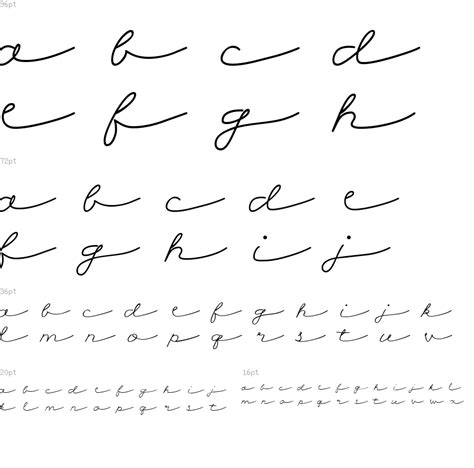 96pt
a b c d
e f g h
72pt
a b c d e
f g h i j
36pt
a b c d e f g h i j k
l m n o p q r s t u v
20pt
a b c d e f g h i j
k l m n o p q r s t
16pt
a b c d e f g h i j k l
m n o p q r s t u v w x